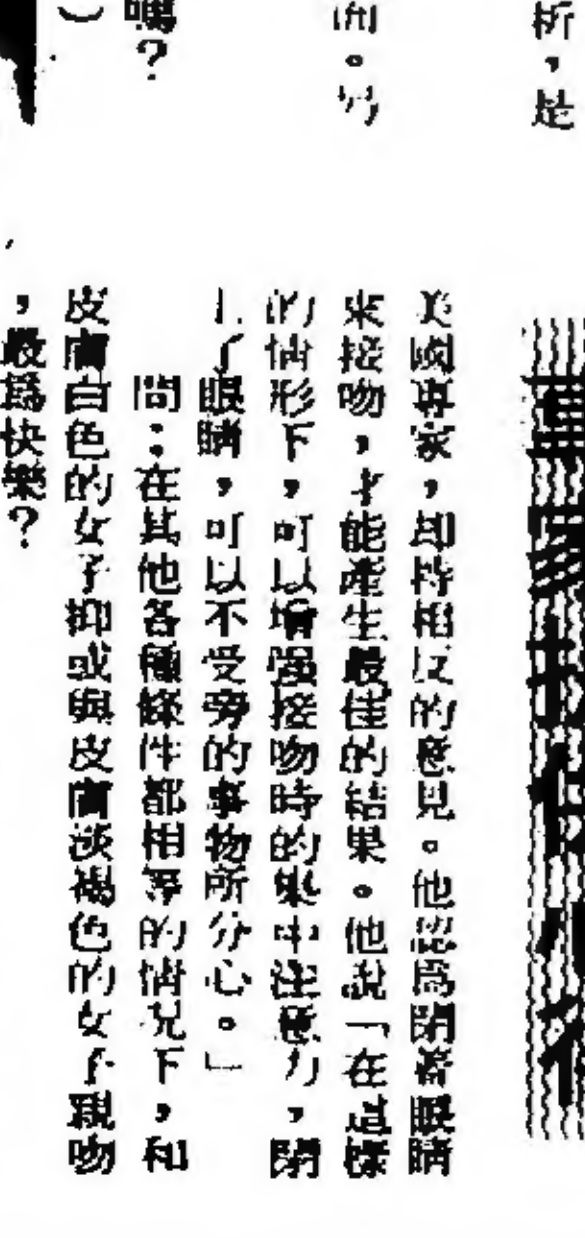 析，是
。另
嗎？
美國專家，却持相反的意見。他認爲閉着眼睛
來接吻，才能產生最佳的結果。他說「在這樣
的情形下，可以增强接吻時的集中注意力，閉
上了眼睛，可以不受旁的事物所分心。」
問：在其他各種條件都相等的情况下，和
皮膚白色的女子抑或與皮膚淡褐色的女子親吻
，最爲快樂？